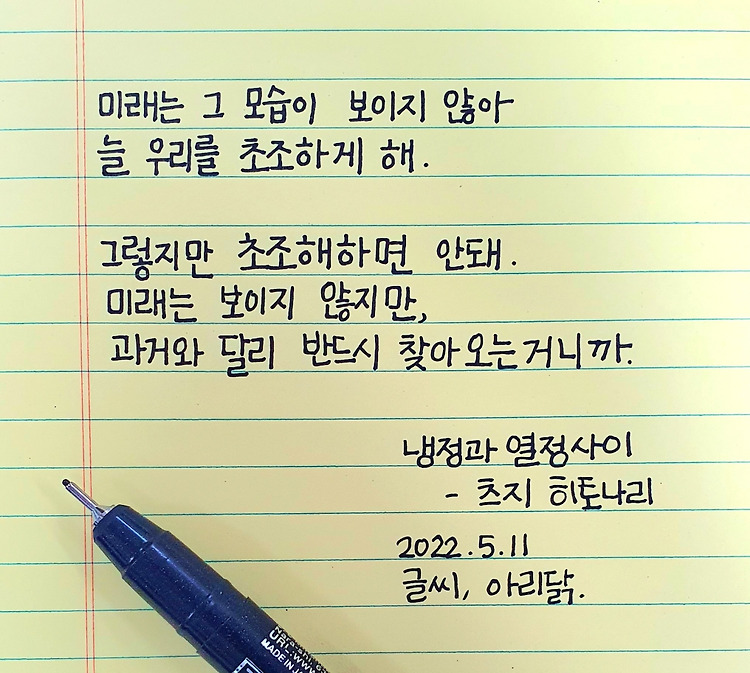 미래는 그 모습이 보이지 않아
늘 우리를 초조하게 해.
그렇지만 초조해하면 안돼.
미래는 보이지 않지만,
과거와 달리 반드시 찾아오는거니까.
냉정과 열정사이
- 츠지 히토나리
2022.5.11
글씨, 아리닭.
URL:www
MADE IN